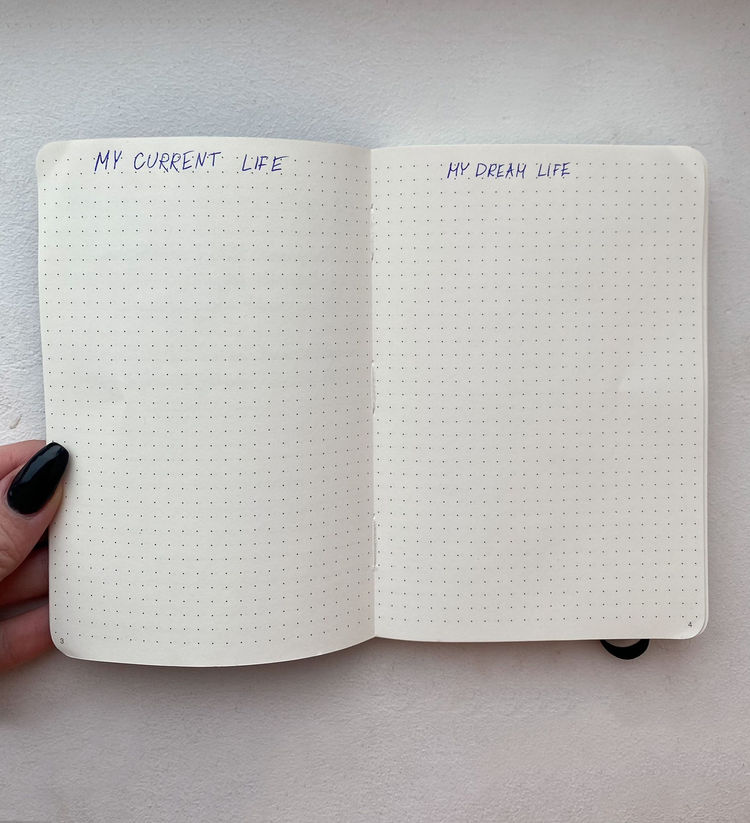 MY CURRENT LIFE
MY DREAM LIFE
3
4